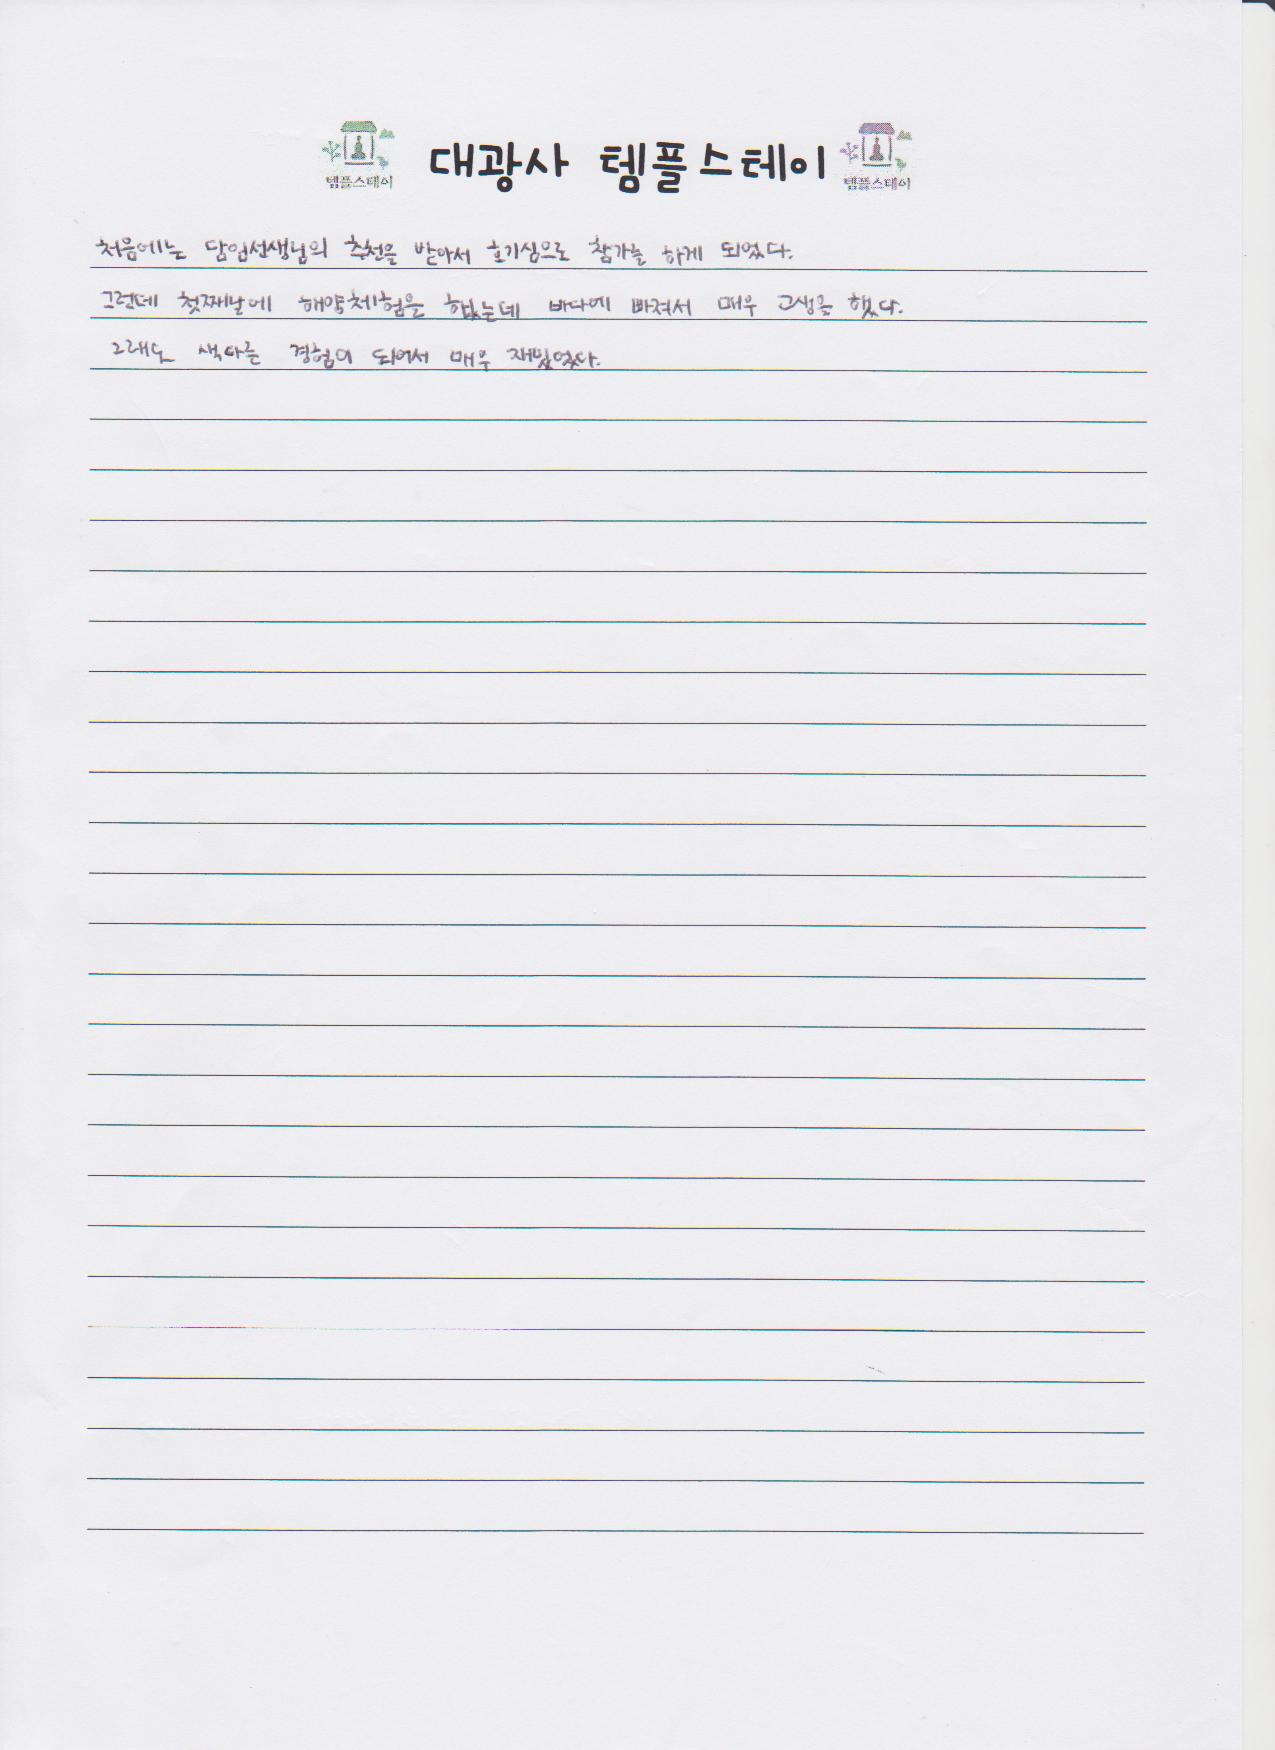 템플스테이
대광사 템플스테이
템플스테이
처음에는 담임선생님의 추천을 받아서 호기심으로 참가를 하게 되었다.
그런데 첫째날에 해양체험을 했는데 바다에 빠져서 매우 고생을 했다.
그래도 색다른 경험이 되어서 매우 재밌었다.